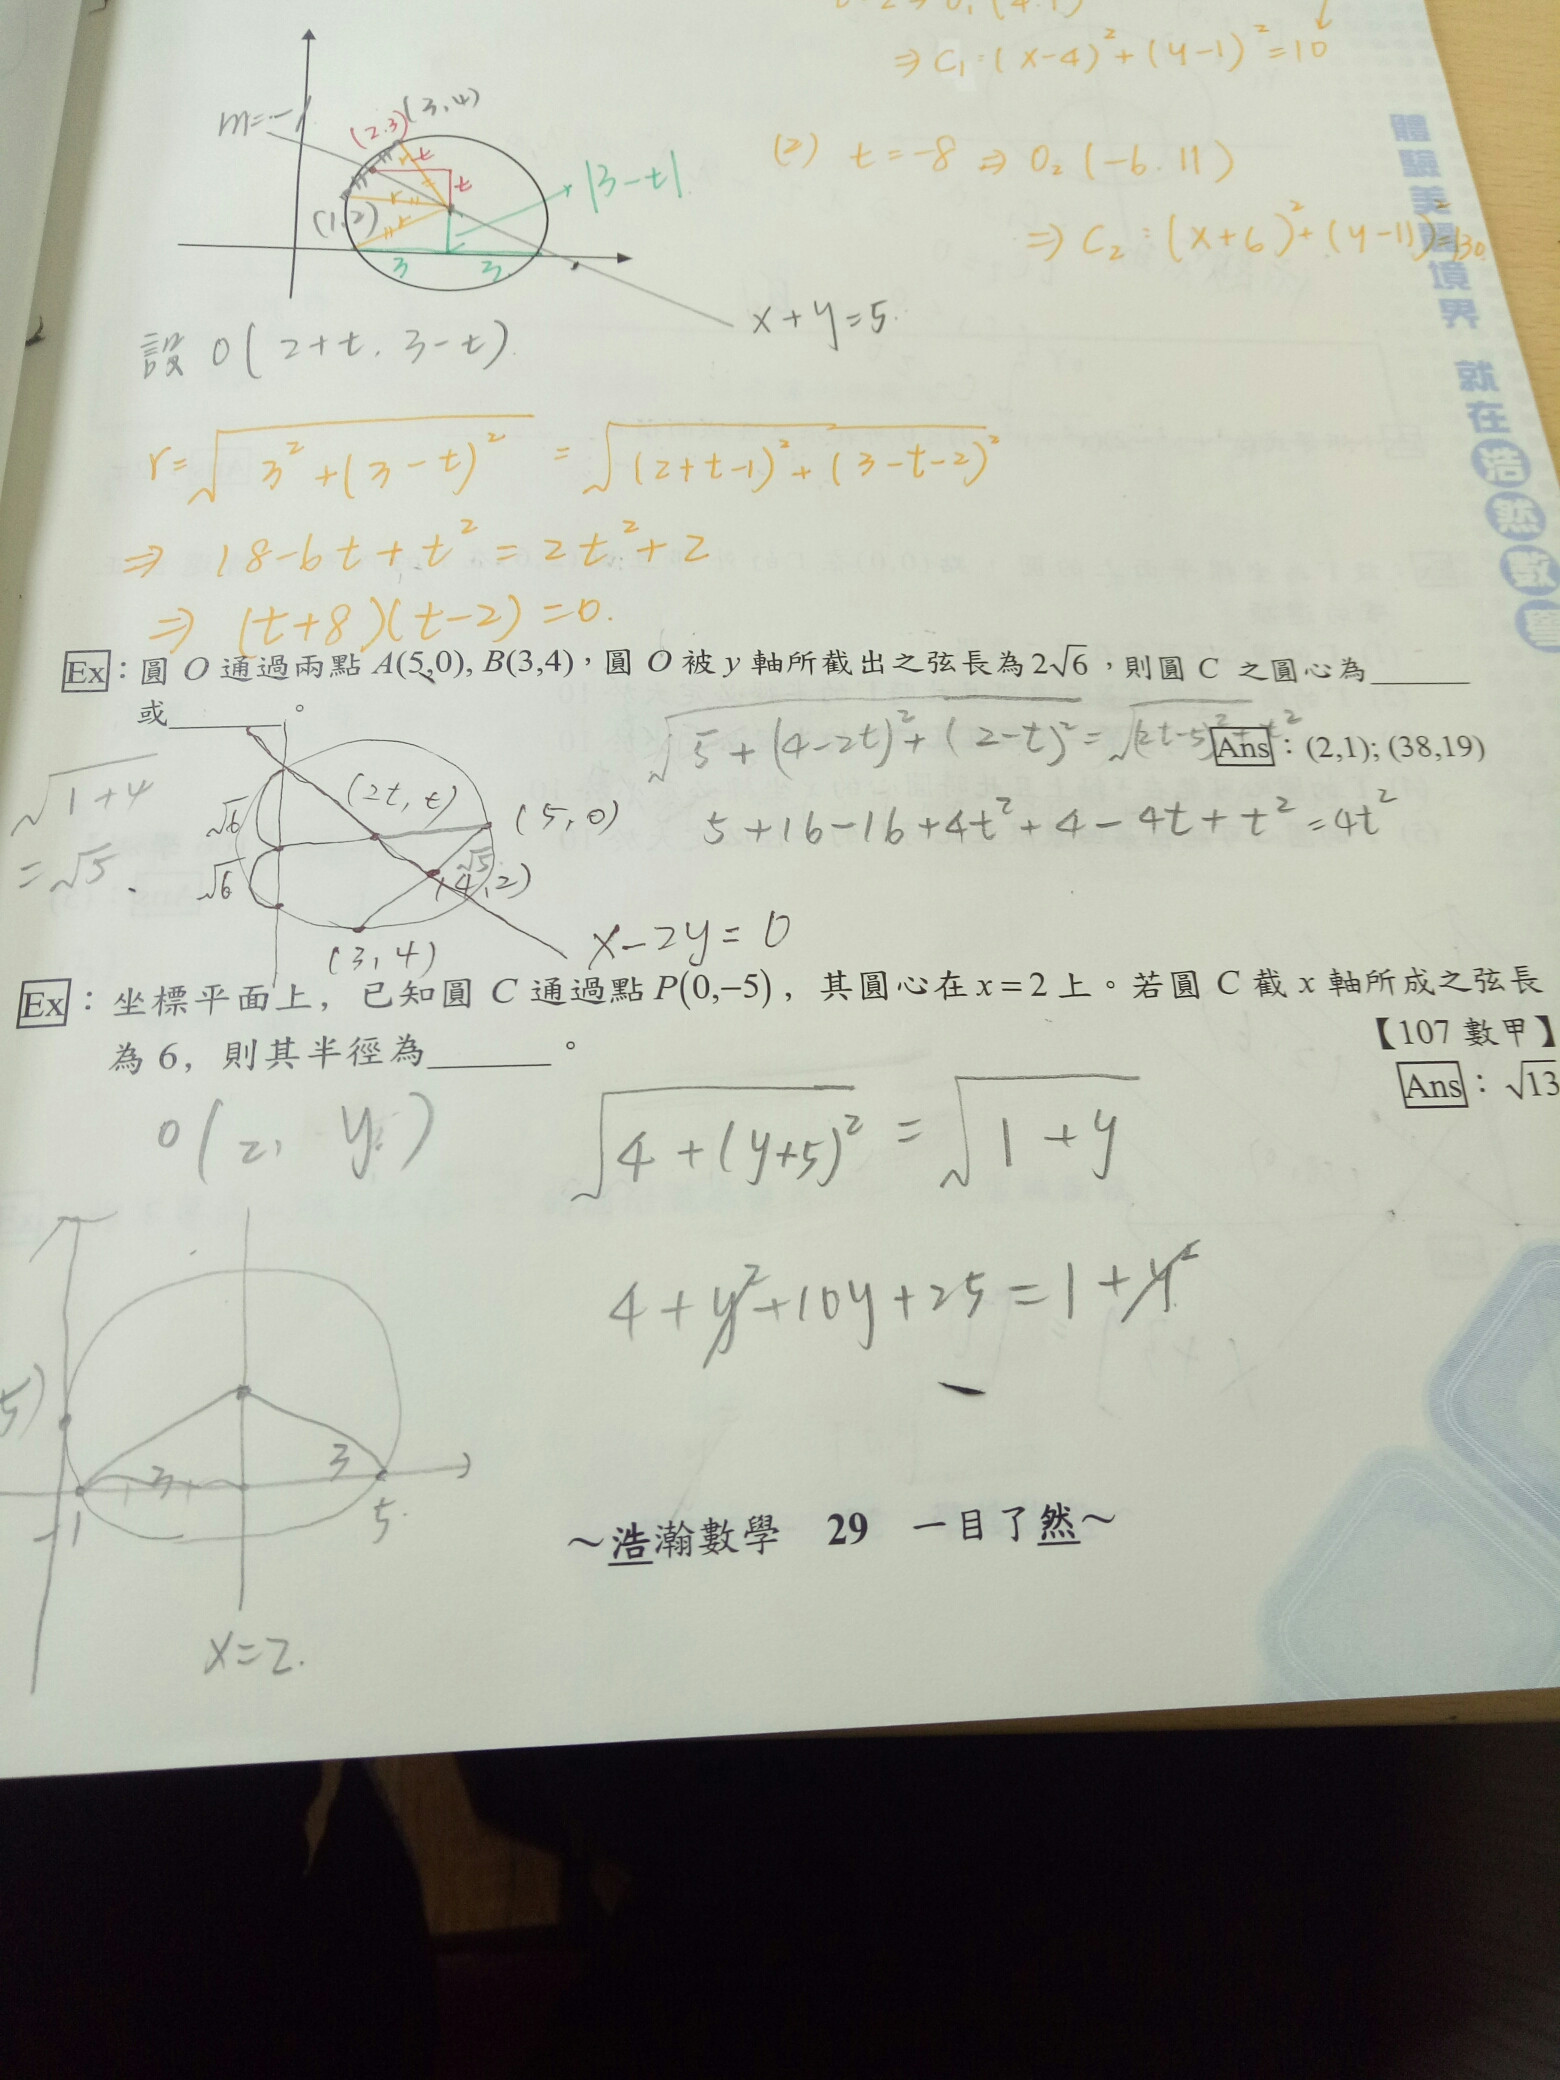 ⇒ C₁:(x-4)²+(y-1)²=10
(2) t=-8 ⇒ O₂(-6.11)
⇒ C₂:(x+6)²+(y-11)²=130
m=-1
(2.3)
(3,4)
t
t
|3-t|
(1.2)
r
r
r
3
3
x+y=5.
設 O(2+t, 3-t)
r=√(3²+(3-t)²) = √((2+t-1)²+(3-t-2)²)
⇒ 18-6t+t²=2t²+2
⇒ (t+8)(t-2)=0.
Ex:圓 O 通過兩點 A(5,0), B(3,4),圓 O 被 y 軸所截出之弦長為 2√6,則圓 C 之圓心為______
或______。
Ans:(2,1); (38,19)
√(1+4)
=√5.
√6
√6
(2t, t)
(5,0)
√5
(4,2)
(3,4)
x-2y=0
5+16-16+4t²+4-4t+t²=4t²
Ex:坐標平面上,已知圓 C 通過點 P(0,−5),其圓心在 x = 2 上。若圓 C 截 x 軸所成之弦長
為 6,則其半徑為______。
【107 數甲】
Ans:√13
O(2, y)
√(4+(y+5)²) = √(1+y
4+y²+10y+25=1+y²
5)
3
3
-1
5
x=2.
~浩瀚數學 29 一目了然~
體驗美麗境界 就在浩然數學